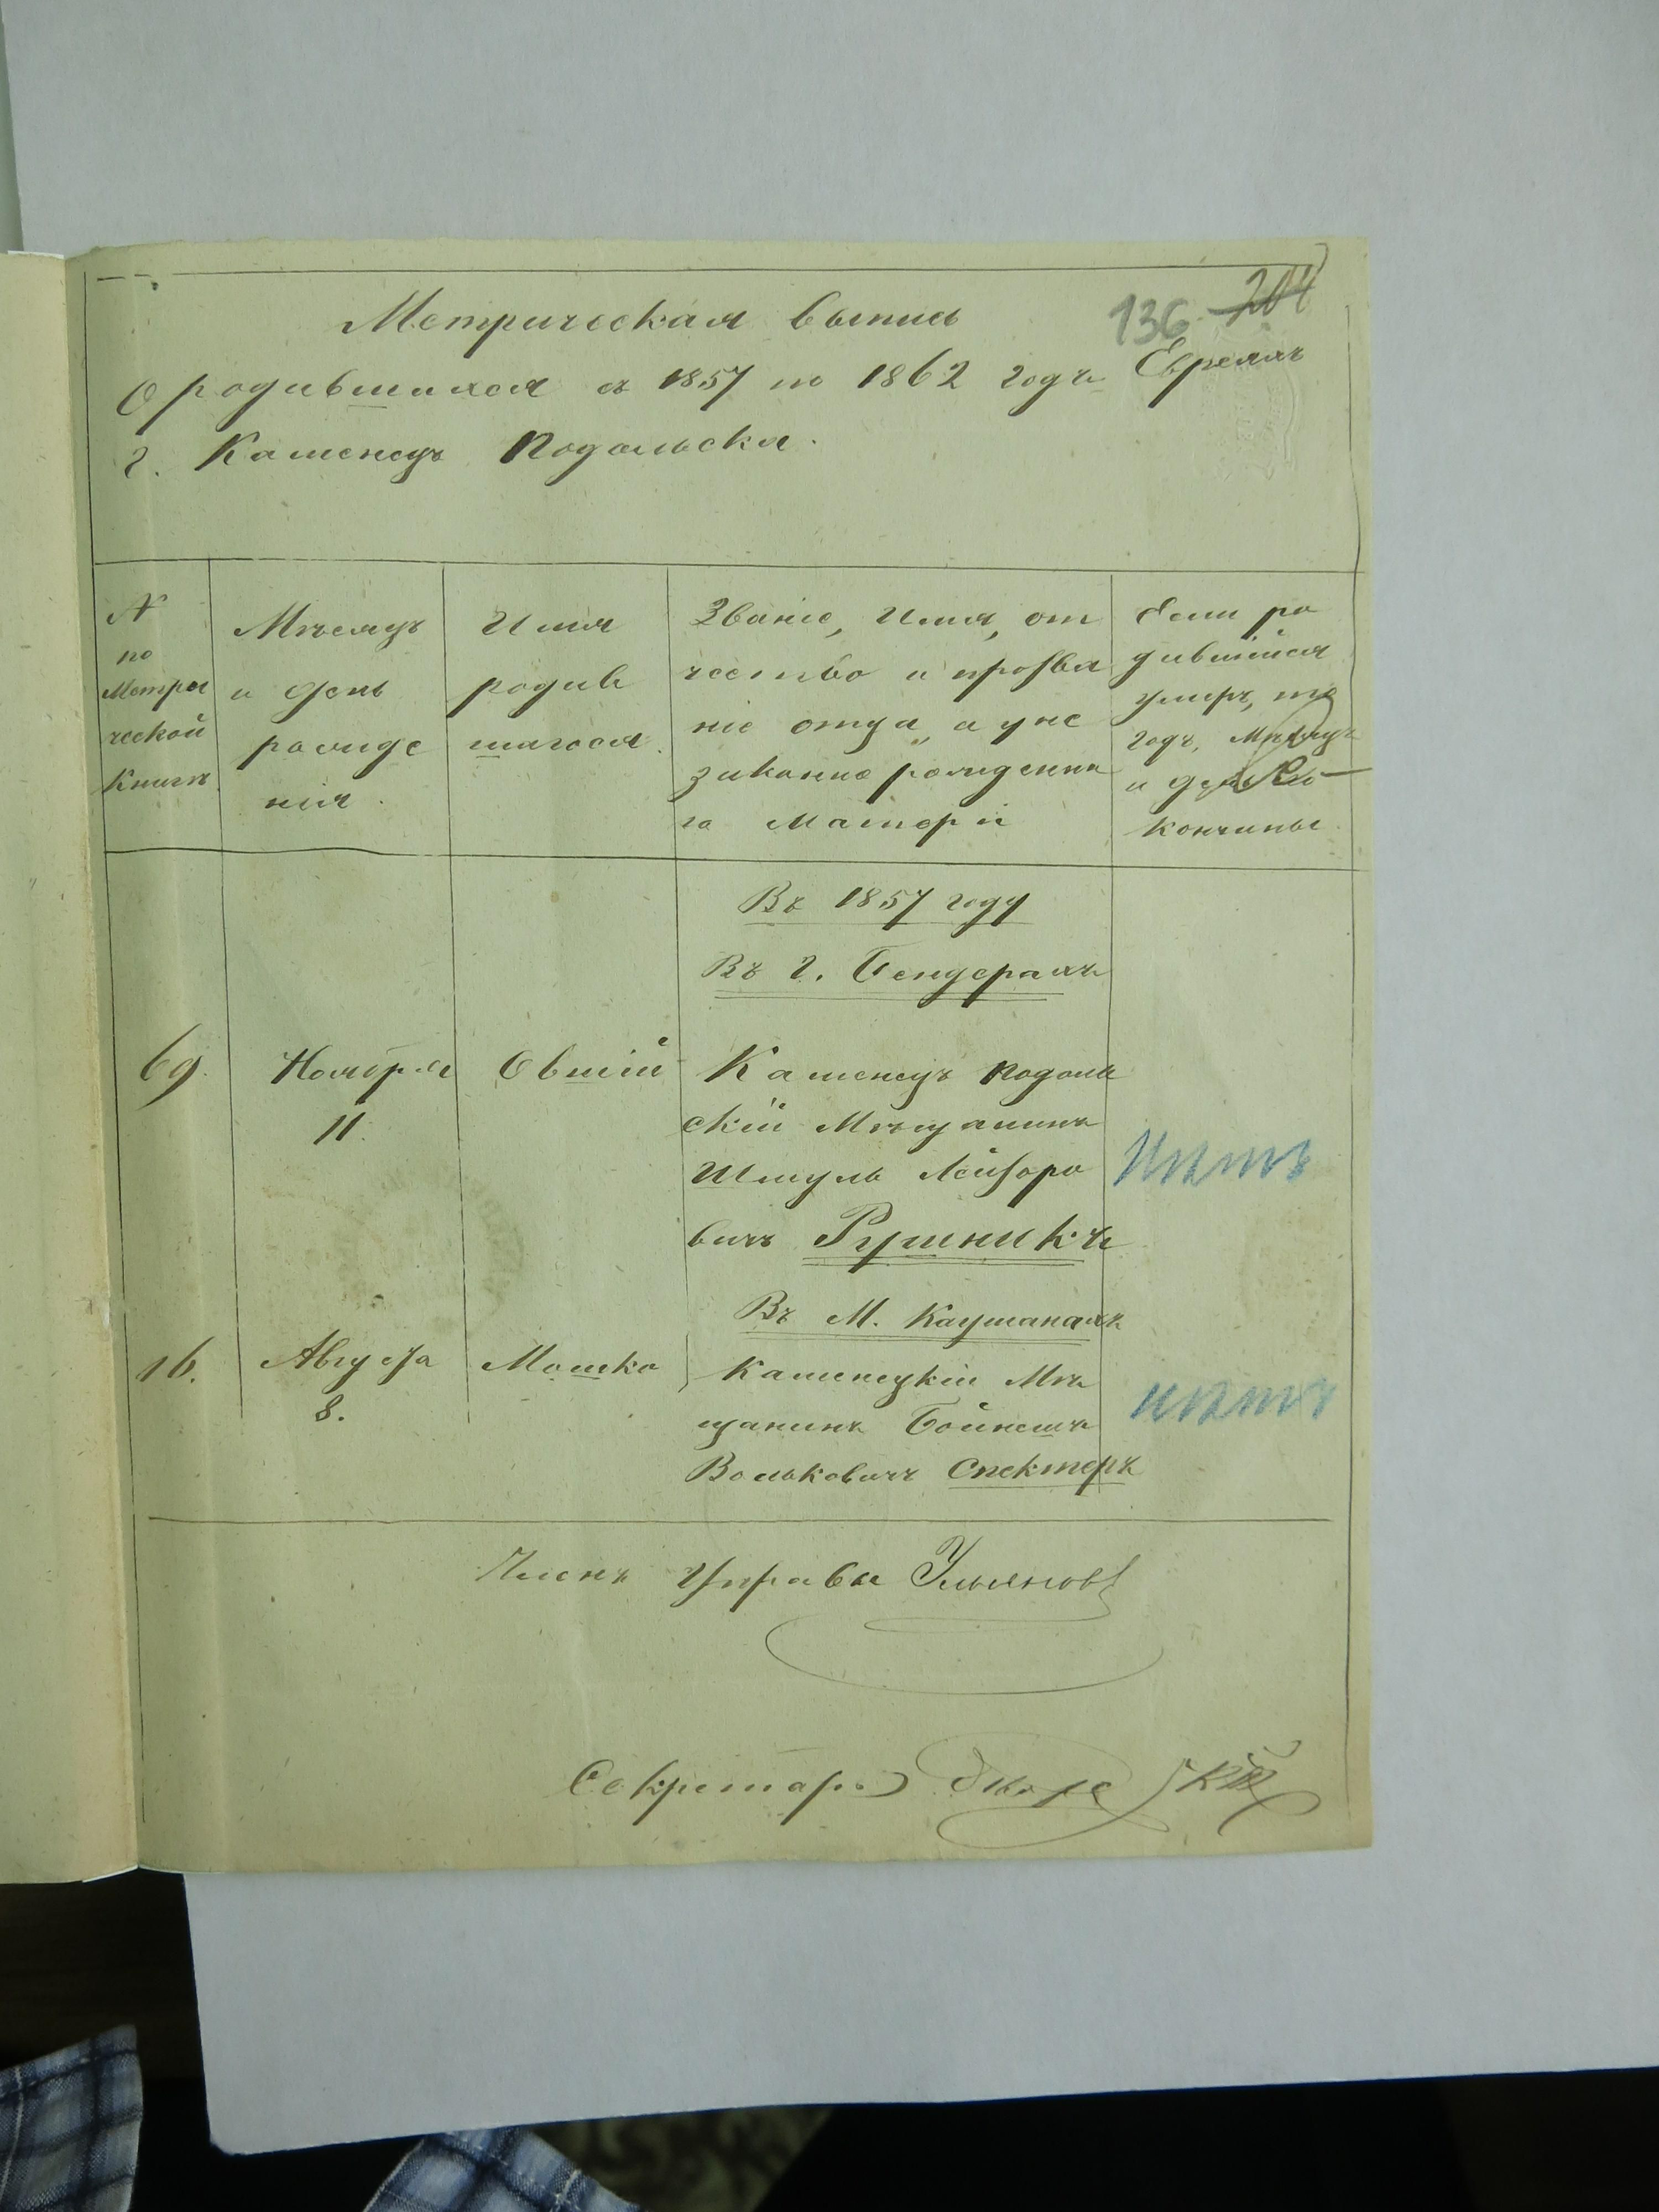 Метрическая выпись
136 204
О родившихся съ 1857 по 1862 годъ Евреяхъ
г. Каменецъ Подольска.
N
по
Метри
ческой
Книгѣ
Мѣсяцъ
и день
рожде
нія.
Имя
родив
шагося.
Званіе, Имя, от
чество и прозва
ніе отца, а у не
законно рожденна
го Матери
Если ро
дившійся
умеръ, то
годъ, Мѣсяцъ
и день
кончины
Въ 1857 году
Въ г. Бендерахъ
69.
Ноября
11.
Овшій
Каменецъ Подоль
скій Мѣщанинъ
Шмуль Лейзоро
вичъ Рушникъ
Нѣтъ
Въ М. Каушанахъ
16.
Августа
8.
Мошко
Каменецкій Мѣ
щанинъ Бойнешъ
Вольковичъ Спекторъ
нѣтъ
Членъ Управы Ульяновъ
Секретарь